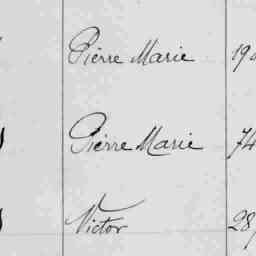 Pierre Marie 19
Pierre Marie 74
Victor 28